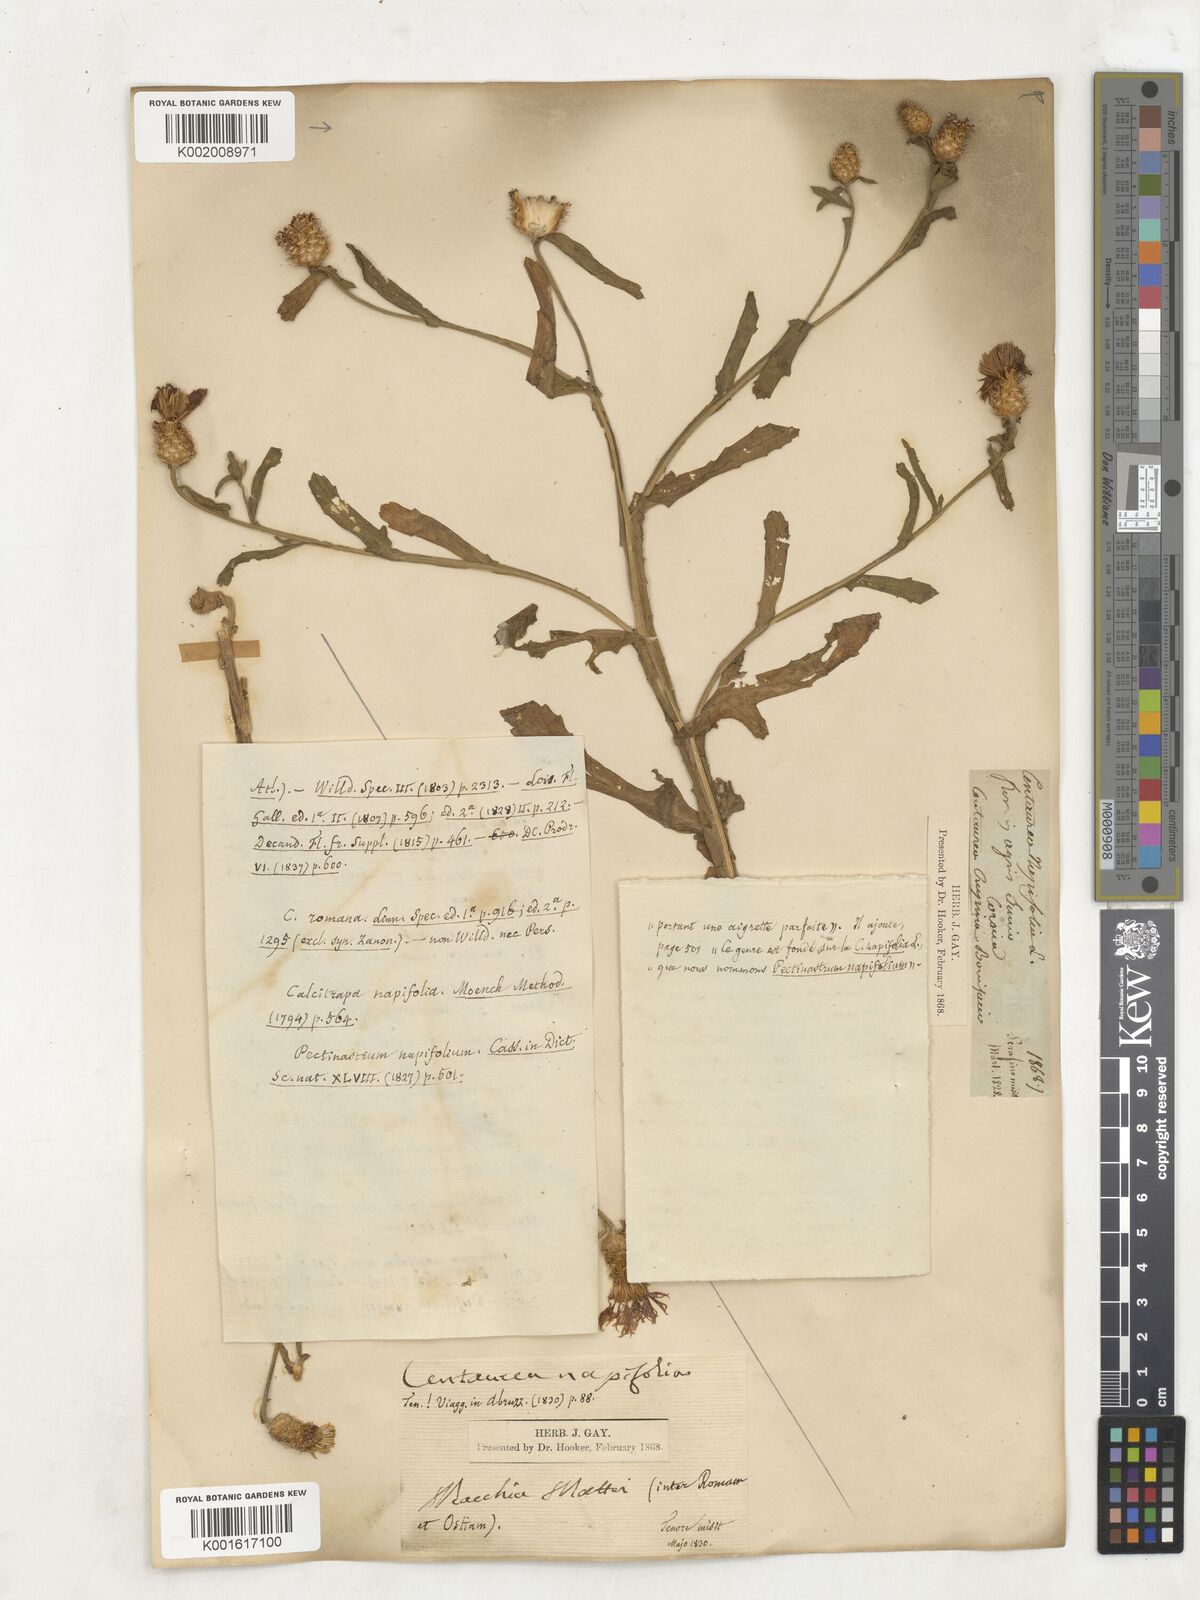 ROYAL BOTANIC GARDENS KEW
K002008971
Atl.). — Willd. Spec. III. (1803) p. 2313. — Lois. Fl.
Gall. ed. 1ª. II. (1807) p. 596; ed. 2ª (1828) II. p. 212. —
Decand. Fl. fr. Suppl. (1815) p. 461. — 600. DC. Prodr.
VI. (1837) p. 600.
C. romana. Linn. Spec. ed. 1ª p. 916; ed. 2ª p.
1295 (excl. syn. Zanon.). — non Willd. nec Pers.
Calcitrapa napifolia. Moench Method.
(1794) p. 564.
Pectinastrum napifolium. Cass. in Dict.
Sc. nat. XLVIII. (1827) p. 501.
"portant une aigrette parfaite". Il ajoute,
page 501 "le genre est fondé sur la C. napifolia L.,
"que nous nommons Pectinastrum napifolium".
HERB. J. GAY.
Presented by Dr. Hooker, February 1868.
Centaurea Napifolia L.
agris
Corsica
Centaurea Bonifacio
1868.
Serafino misit
Mart. 1828.
Centaurea napifolia
Ten.! Viagg. in Abruzz. (1830) p. 88.
HERB. J. GAY.
Presented by Dr. Hooker, February 1868.
Macchia Mattei (inter Romam
et Ostiam).
Tenore misit
Majo 1830.
ROYAL BOTANIC GARDENS KEW
K001617100
inches
Density
Don Williams
M000908
Royal Botanic Gardens
Kew
copyright reserved
0 1 2 3 4 5 6 7 8 9 10
cm